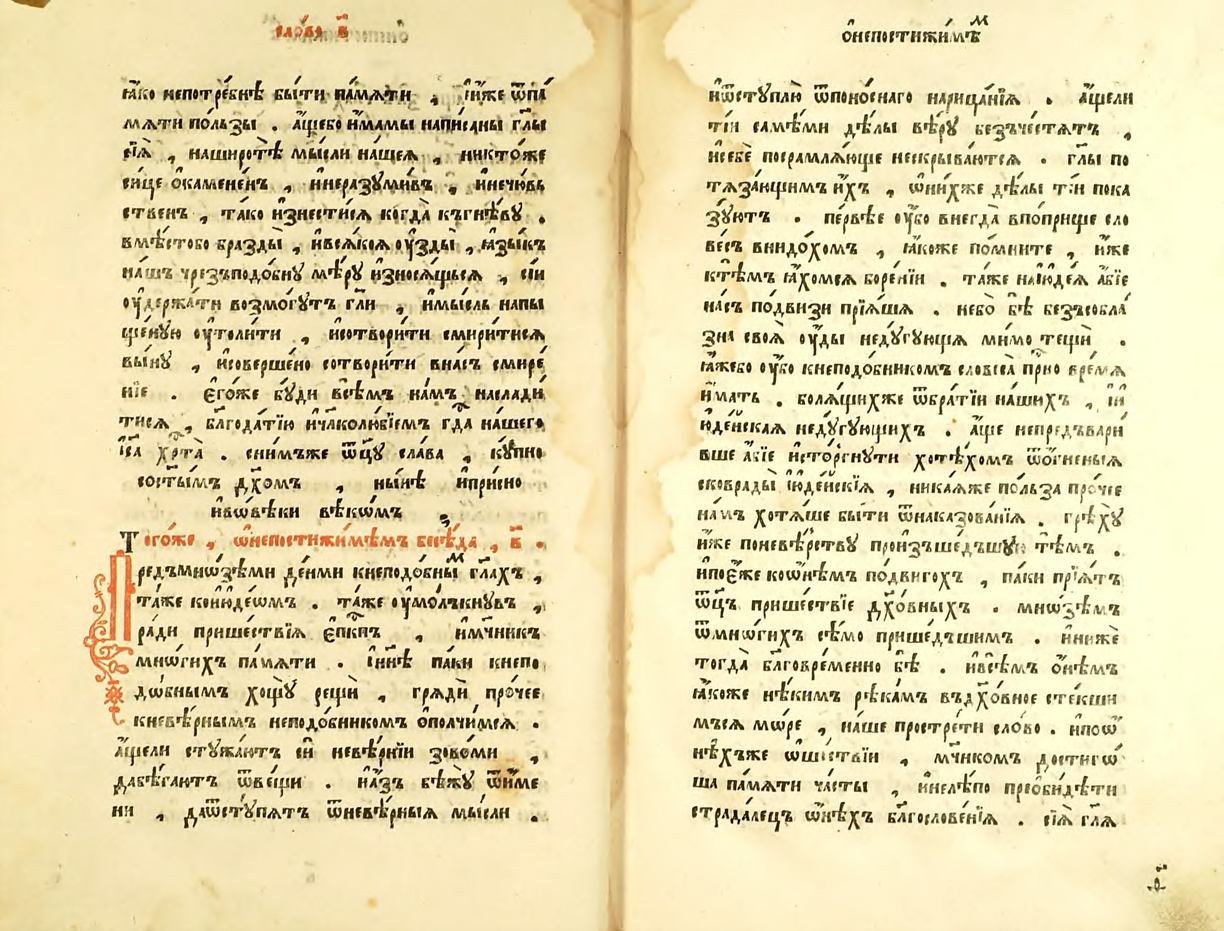 сло́во в҃
ꙗ҆́ко непотре́бнѣ бы́ти па́мѧти , і҆́нже ѿпа́
мѧти по́льзы . а҆́щебо и҆́мамы написаны гл҃ы
сїѧ̀ , наширотѣ̀ мы́сли на́шеѧ , никто́же
си́це ѻ҆ка́мене́нъ , и҆неразꙋми́въ , и҆нечю́вь
ственъ , та́ко и҆знести́сѧ когда̀ къгнѣ́вꙋ .
вмѣ́стобо бразды̀ , и҆всѧ́коѧ ᲂу҆зды̀ , ꙗ҆зы́къ
на́шъ чрезъподо́бнꙋ мѣ́рꙋ и҆зносѧ́щьсѧ , сїи
ᲂу҆держа́ти возмо́гꙋтъ гл҃и , и҆мы́сль напы
ще́нꙋю ᲂу҆толи́ти , и҆сотвори́ти смири́тисѧ
вы́нꙋ , и҆соверше́но сотвори́ти внасъ смире́
нїе . є҆го́же бꙋ́ди всѣ́мъ на́мъ наслади́
тисѧ , благода́тїю и҆чл҃колю́бїемъ гд҇а на́шего
і҆са хрт҇а̀ . сни́мъже ѿц҃ꙋ сла́ва , кꙋ́пно
состы́мъ дх҃омъ , ны́нѣ и҆при́сно
и҆вѡвѣ́ки вѣкѡ́мъ
Того́же , ѡ҆непостижи́мѣмъ бесѣ́да , в҃ .
Предъмно́зѣми де́нми кнеподо́бны гл҃ахъ ,
та́же коию҆де́ѡмъ . та́же ᲂу҆мо́лъкнꙋвъ ,
ра́ди прише́ствїѧ є҆пкпъ , и҆мч҃никъ
мнѡ́гихъ па́мѧти . і҆нн҃ѣ па́ки кнепо
дѡ́бнымъ хощꙋ̀ рещѝ , грѧдѝ про́чее
кневѣ́рнымъ неподо́бникомъ ѻ҆полчи́мсѧ .
а҆́щели стꙋжа́ютъ сѝ невѣ́рнїи зово́ми ,
дабѣ́гаютъ ѿве́щи . и҆а҆́зъ бѣжꙋ̀ ѿи́ме
ни , даѿстꙋ́пѧт ѿневѣ́рныѧ мы́сли .
ѻ҆непостижи́мѣм
и҆ѿстꙋплю̀ ѿпоно́снаго нарица́нїѧ . а҆́щели
тїи самѣ́ми дѣ́лы вѣ́рꙋ безъче́стѧтъ ,
и҆себѐ посрамлѧ́юще нескрыва́ютсѧ . гл҃ы по
тѧза́ющимъ и҆́хъ , ѡ҆ни́хже дѣ́лы тїи пока
зꙋ́ютъ . пе́рвѣе ᲂу҆́бо внегда̀ впопри́ще сло
ве́съ внидо́хомъ , ꙗ҆́коже по́мните , и҆́же
ктѣ́мъ ꙗ҆́хомсѧ боре́нїи . та́же наі҆юде́ѧ а҆́бїе
на́съ по́двизи прїѧ́шѧ . небо̀ бѣ̀ безъсобла́
зна своѧ̀ ᲂу҆́ды недꙋ́гꙋющїѧ ми́мо тещѝ .
ꙗ҆́жебо ᲂу҆́бо кнеподо́бникомъ словеса̀ при҇но вре́мѧ
и҆́мать . болѧ́щихже ѿбра́тїи на́шихъ , і҆и
ю҆де́йскаѧ недꙋ́гꙋющихъ . а҆́ще непредъвари́
вше а҆́бїе и҆сто́ргнꙋти хотѣ́хомъ ѿо́гненыѧ
сковрады̀ і҆юде́йскїѧ , никаѧже по́льза про́чее
на́мъ хотѧ́ше бы́ти ѿнаказова́нїѧ . грѣхꙋ̀
и҆́же поневѣ́рствꙋ произъше́дъшꙋю тѣ́мъ .
и҆поє҆́же коѻ҆нѣ́мъ по́двигохъ , па́ки прїѧ́тъ
ѿц҃ъ прише́ствїе дх҃о́вныхъ . мно́зѣмъ
ѿмнѡ́гихъ сѣ́мо прише́дъшимъ . и҆нижѐ
тогда̀ бл҃говре́менно бѣ̀ . и҆всѣ́мъ ѻ҆нѣ́мъ
ꙗ҆́коже нѣ́кимъ рѣка́мъ въдх҃о́вное сте́кши
мъсѧ мо́ре , на́ше простре́ти сло́во . и҆поѿ
нѣ́хъже ѿше́ствїи , мч҃никомъ дости́гѡ
ша па́мѧти ча́сты , и҆нелѣ́по преѻ҆би́дѣти
страда́лецъ ѻ҆нѣ́хъ бл҃гослове́нїѧ . сїѧ̀ гл҃ѧ